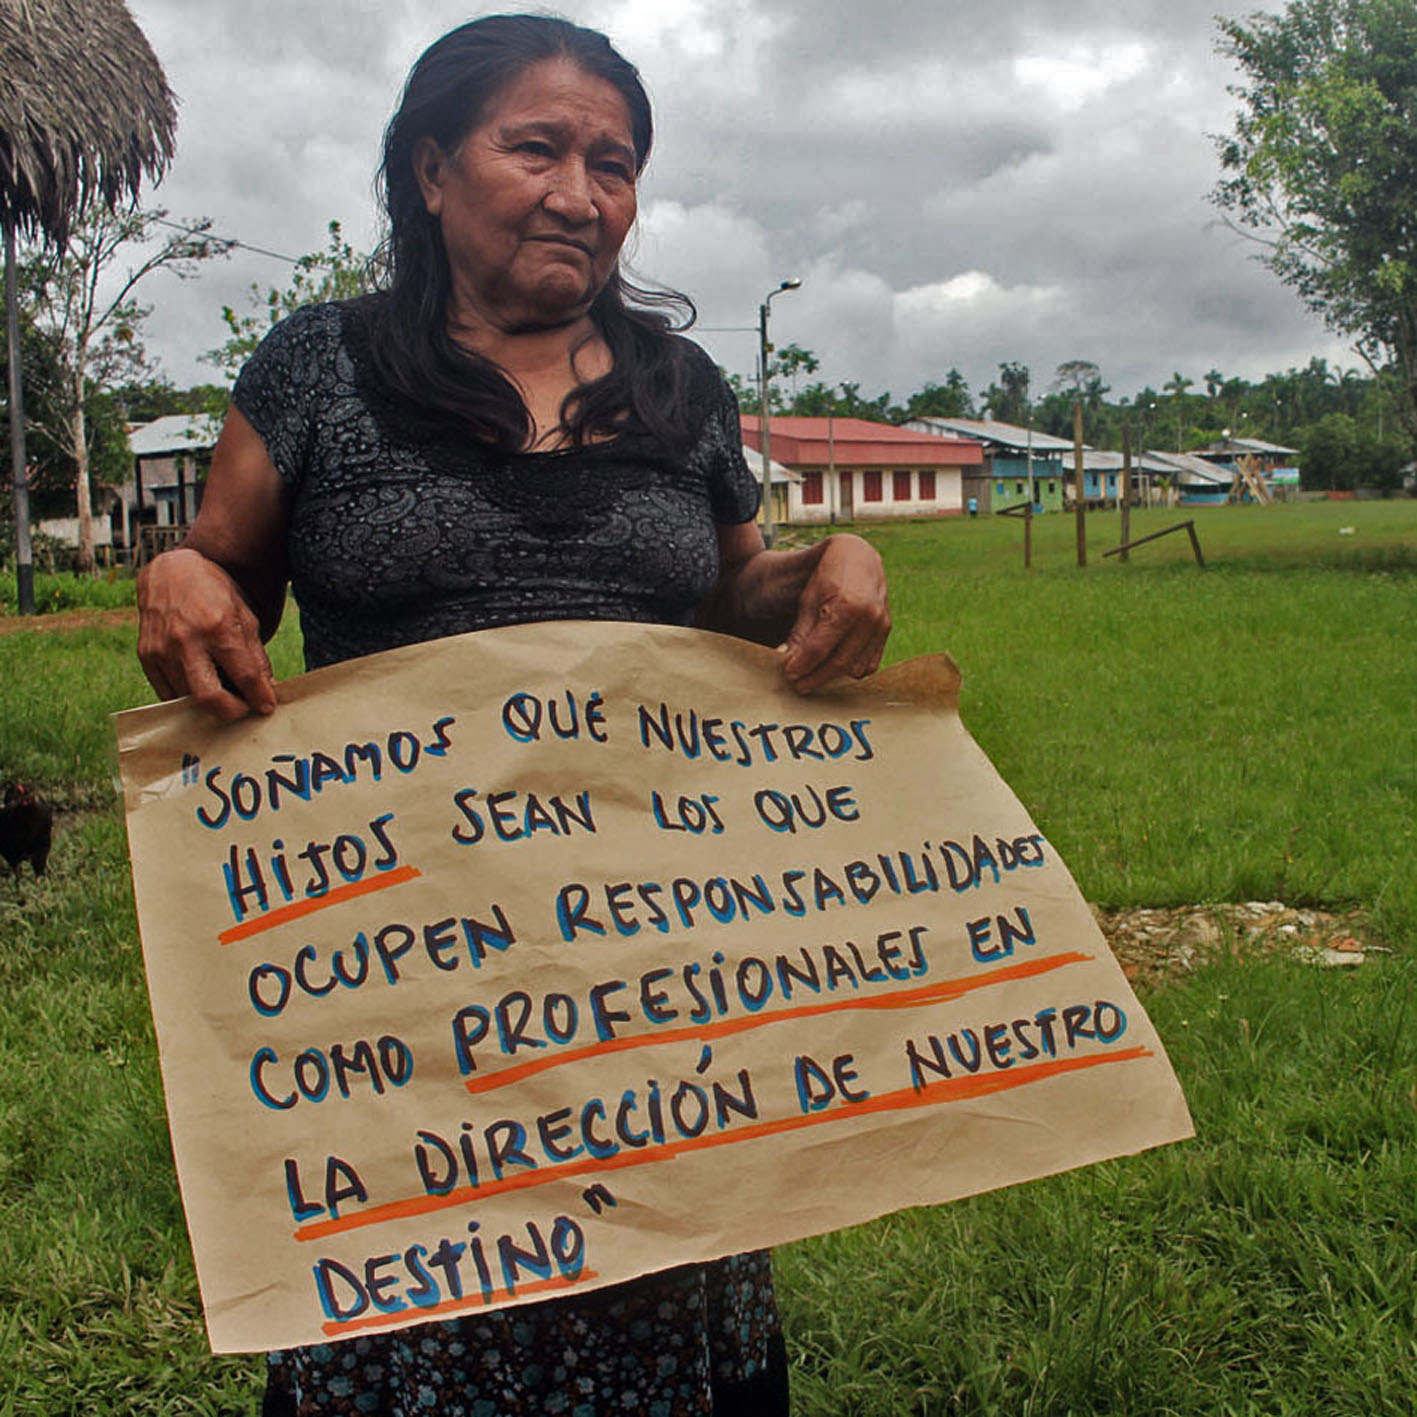 "SOÑAMOS QUE NUESTROS
HIJOS SEAN LOS QUE
OCUPEN RESPONSABILIDADES
COMO PROFESIONALES EN
LA DIRECCIÓN DE NUESTRO
DESTINO"